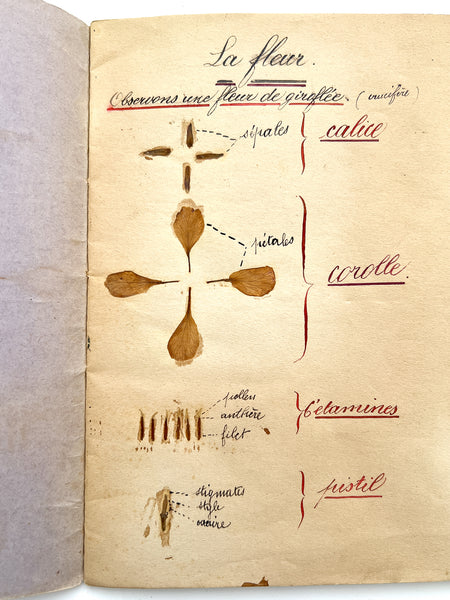 La fleur.
Observons une fleur de giroflée. (crucifère)
sépales
calice
pétales
corolle.
pollen
anthère
filet
6 étamines
stigmates
style
ovaire
pistil